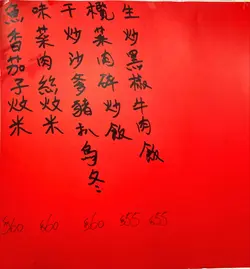 生炒黑椒牛肉飯
欖菜肉碎炒飯
干炒沙爹豬扒烏冬
味菜肉絲炆米
魚香茄子炆米
$60 $60 $60 $55 $55